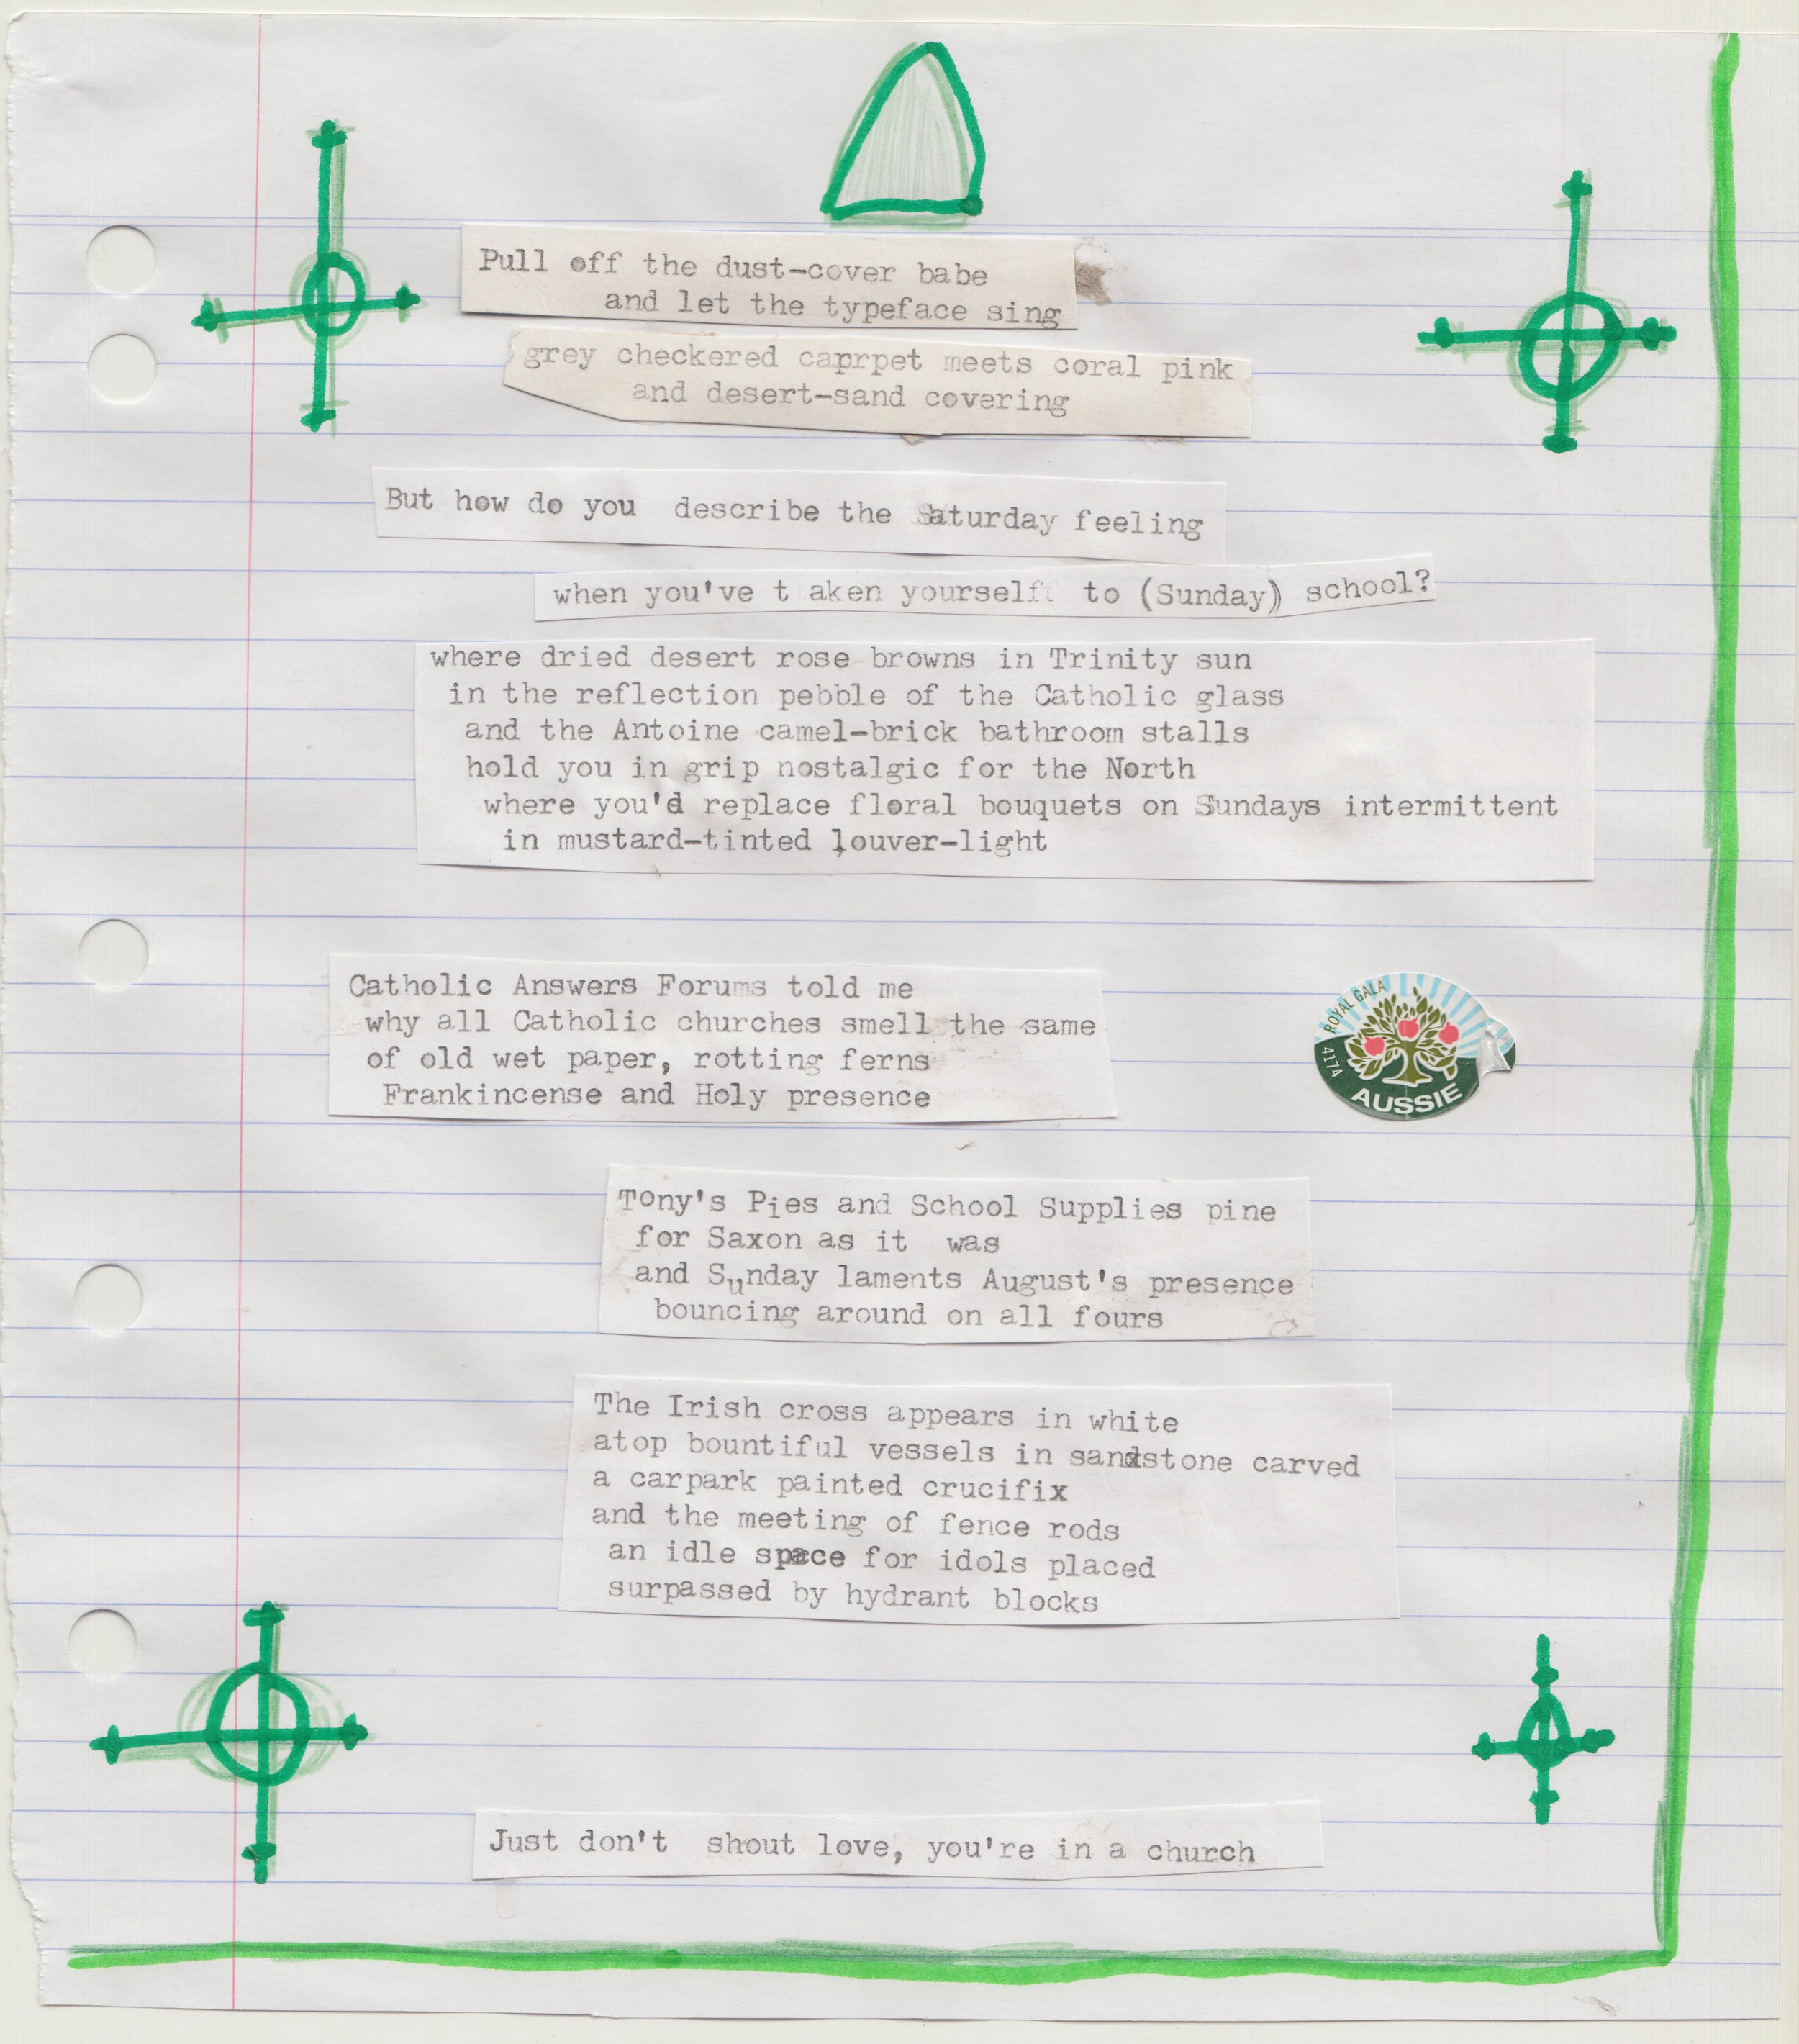 Pull off the dust-cover babe
and let the typeface sing
grey checkered caprpet meets coral pink
and desert-sand covering
But how do you describe the Saturday feeling
when you've t aken yourself to (Sunday) school?
where dried desert rose browns in Trinity sun
in the reflection pebble of the Catholic glass
and the Antoine camel-brick bathroom stalls
hold you in grip nostalgic for the North
where you'd replace floral bouquets on Sundays intermittent
in mustard-tinted louver-light
Catholic Answers Forums told me
why all Catholic churches smell the same
of old wet paper, rotting ferns
Frankincense and Holy presence
ROYAL GALA
4174
AUSSIE
Tony's Pies and School Supplies pine
for Saxon as it was
and Sunday laments August's presence
bouncing around on all fours
The Irish cross appears in white
atop bountiful vessels in sandstone carved
a carpark painted crucifix
and the meeting of fence rods
an idle space for idols placed
surpassed by hydrant blocks
Just don't shout love, you're in a church